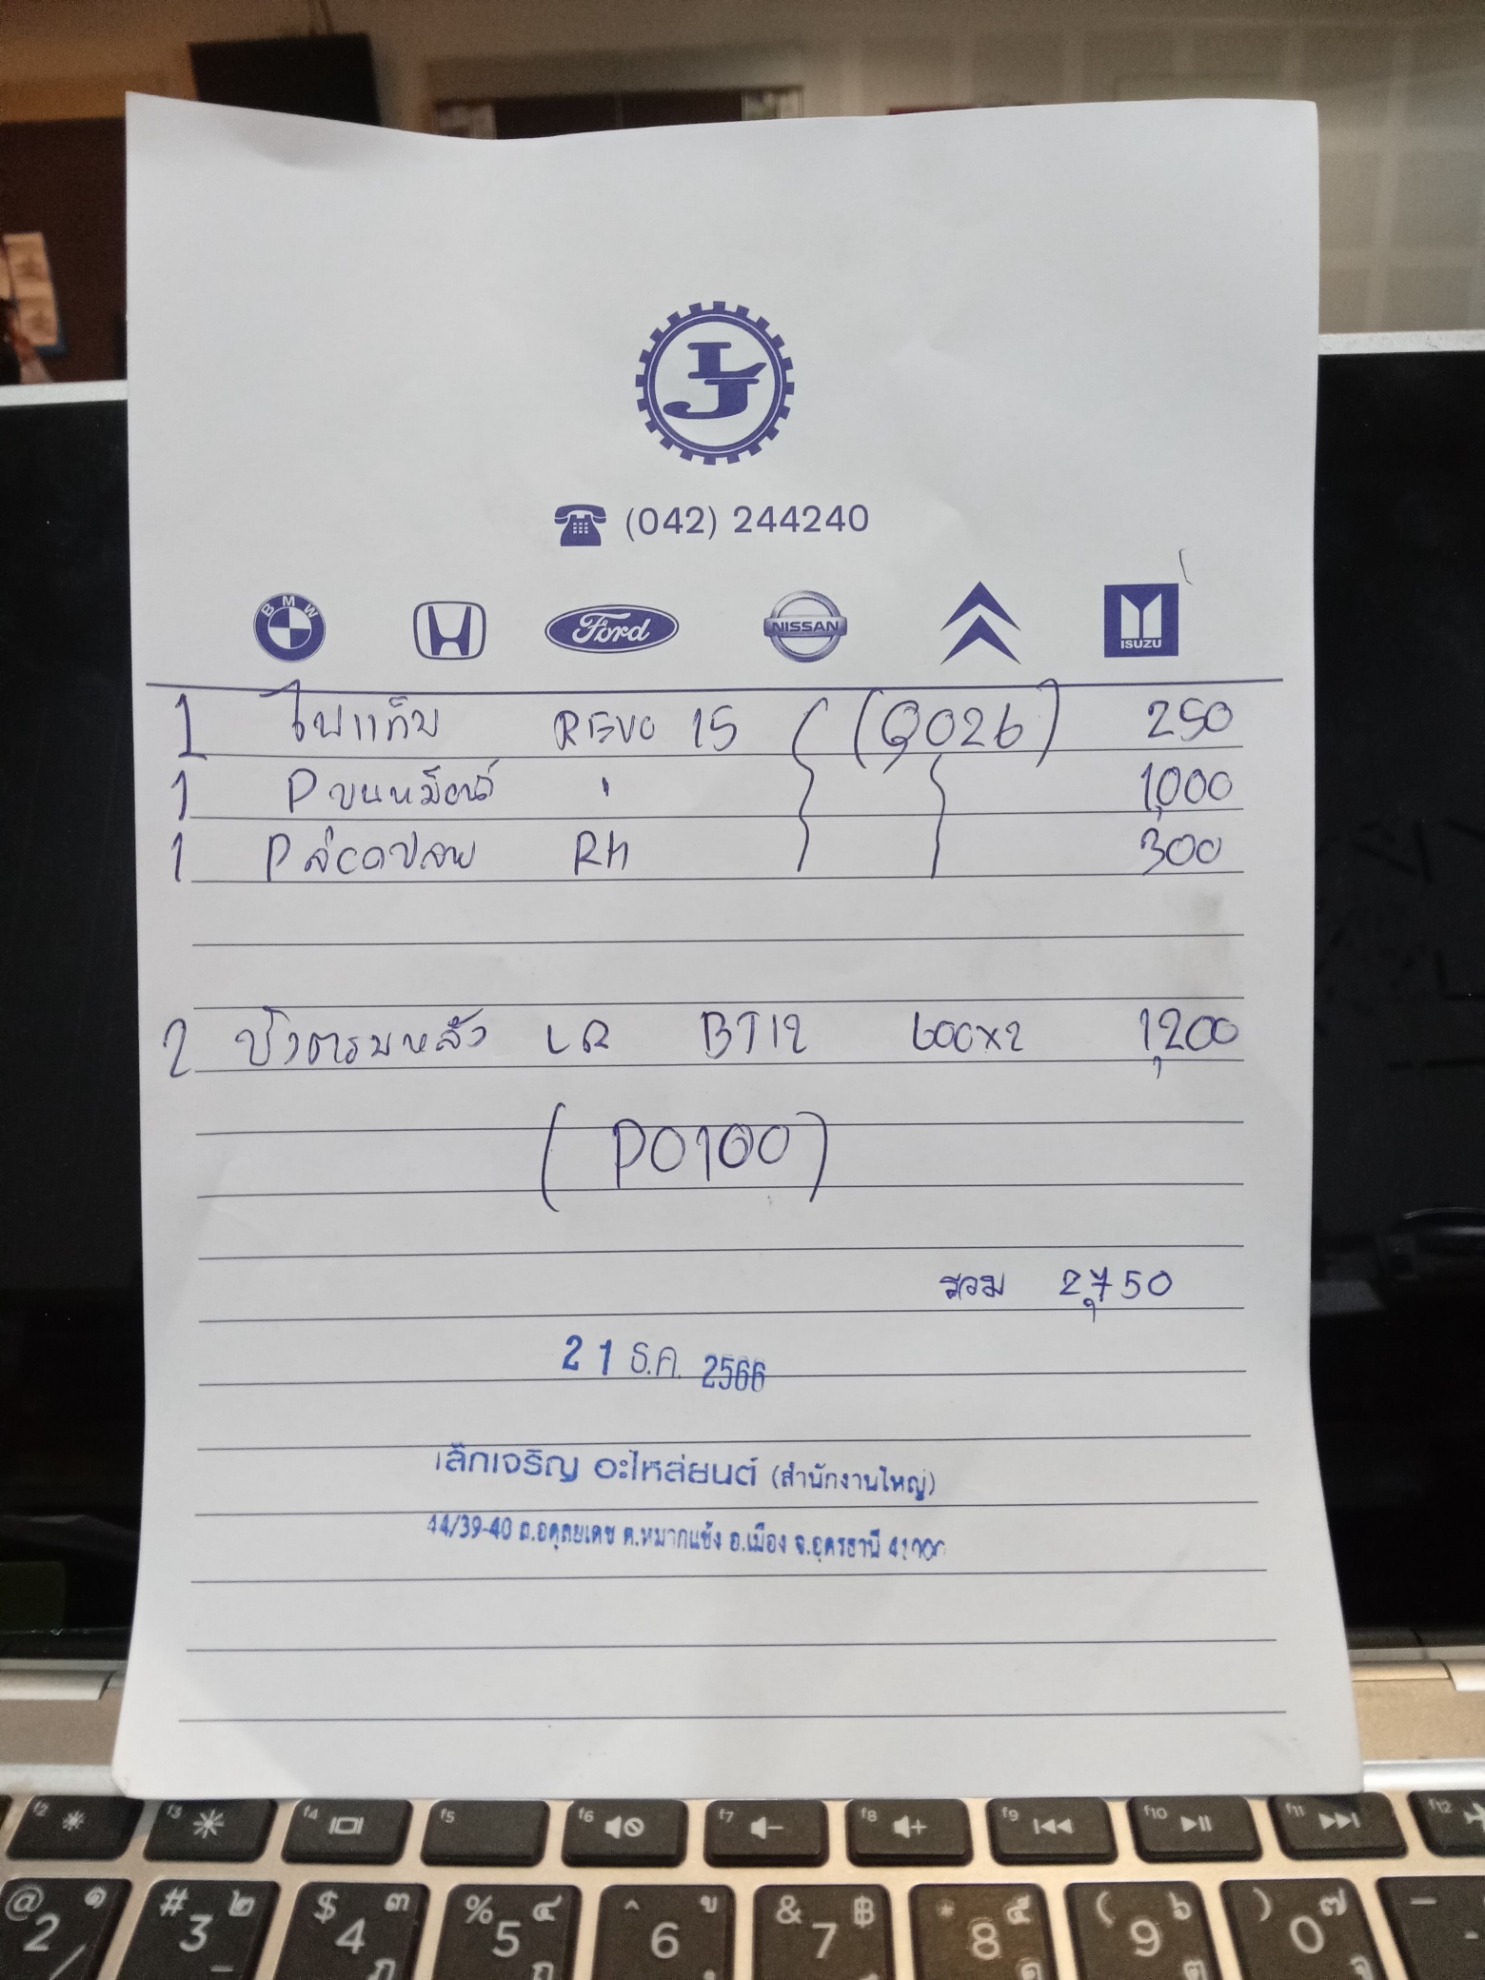 LJ
(042) 244240
BMW Ford NISSAN ISUZU
1 ไฟแก้ม REVO 15 (Q026) 250
1 P ขนหม้อน้ำ " 1,000
1 P RH 300
2 บังตรมหลัง LR BT12 600x2 1,200
(P0100)
รวม 2,750
21 ธ.ค. 2566
เล็กเจริญ อะไหล่ยนต์ (สำนักงานใหญ่)
44/39-40 ถ.อดุลยเดช ต.หมากแข้ง อ.เมือง จ.อุดรธานี 41000
f2 f3 f4 f5 f6 f7 f8 f9 f10 f11 f12
@ 2 ๑ / # 3 ๒ _ $ 4 ๓ ภ % 5 ๔ ถ ^ 6 ู ุ & 7 ฿ ึ * 8 ๕ ค ( 9 ๖ ต ) 0 ๗ จ